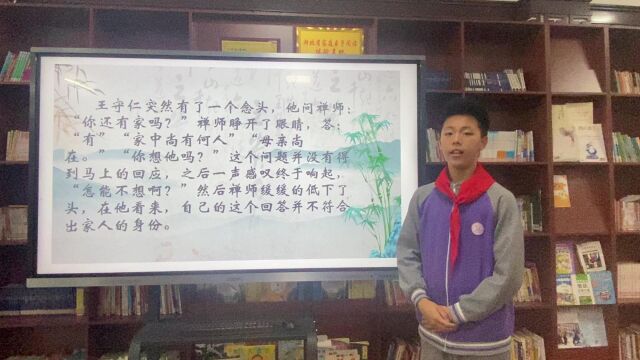 王守仁突然有了一个念头，他问禅师：
“你还有家吗？”禅师睁开了眼睛，答：
“有”“家中尚有何人”“母亲尚
在。”“你想他吗？”这个问题并没有得
到马上的回应，之后一声感叹终于响起，
“怎能不想啊？”然后禅师缓缓的低下了
头，在他看来，自己的这个回答并不符合
出家人的身份。